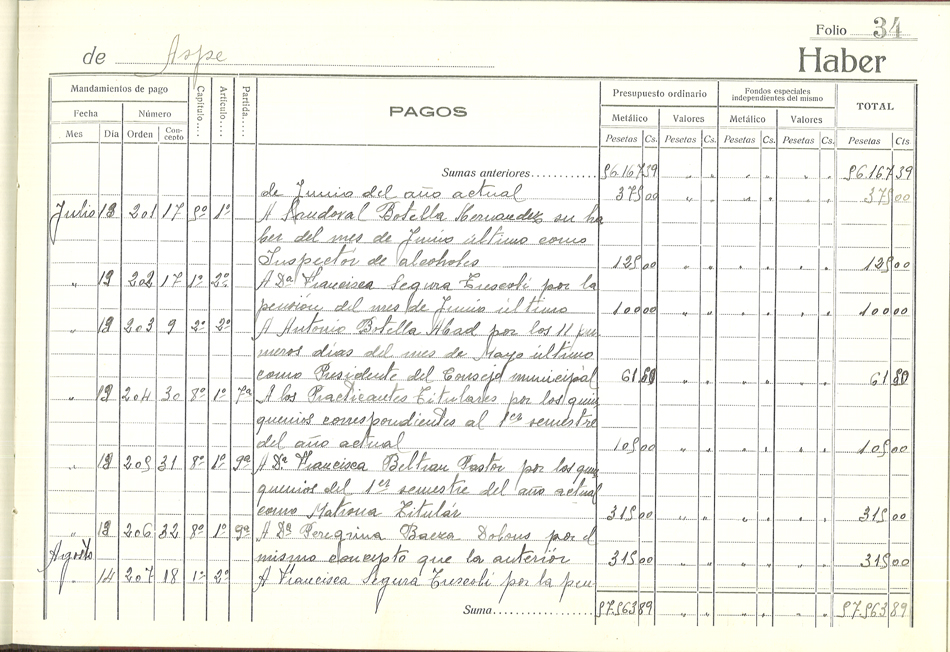 Folio 34
de Aspe
Haber
Mandamientos de pago Capítulo.... Artículo.... Partida..... PAGOS Presupuesto ordinario Fondos especiales independientes del mismo TOTAL
Fecha Número Metálico Valores Metálico Valores
Mes Día Orden Concepto Pesetas Cs. Pesetas Cs. Pesetas Cs. Pesetas Cs. Pesetas Cts
Sumas anteriores............ 56.167 39 " " " " " " 56.167 39
de Junio del año actual 375 00 " " " " " " 375 00
Julio 13 201 17 5º 1º A Sandoval Botella Hernandez su ha
ber del mes de Junio último como
Inspector de alcoholes 125 00 " " " " " " 125 00
" 12 202 17 1º 2º A Dª Francisca Segura Crescoli por la
pensión del mes de Junio último 100 00 " " " " " " 100 00
" 12 203 9 2º 2º A Antonio Botella Abad por los 11 pri
meros dias del mes de Mayo último
como Presidente del Consejo municipal 61 50 " " " " " " 61 50
" 12 204 30 8º 1º 7ª A los Practicantes Titulares por los quin
quenios correspondientes al 1er semestre
del año actual 105 00 " " " " " " 105 00
" 12 205 31 8º 1º 9ª A Dª Francisca Beltran Pastor por los quin
quenios del 1er semestre del año actual
como Matrona Titulár 315 00 " " " " " " 315 00
" 12 206 32 8º 1º 9ª A Dª Peregrina Baeza por el
mismo concepto que la anteriór 315 00 " " " " " " 315 00
Agosto 14 207 18 1º 2º A Francisca Segura Crescoli por la pen
Suma..................... 57.563 89 " " " " " " 57.563 89